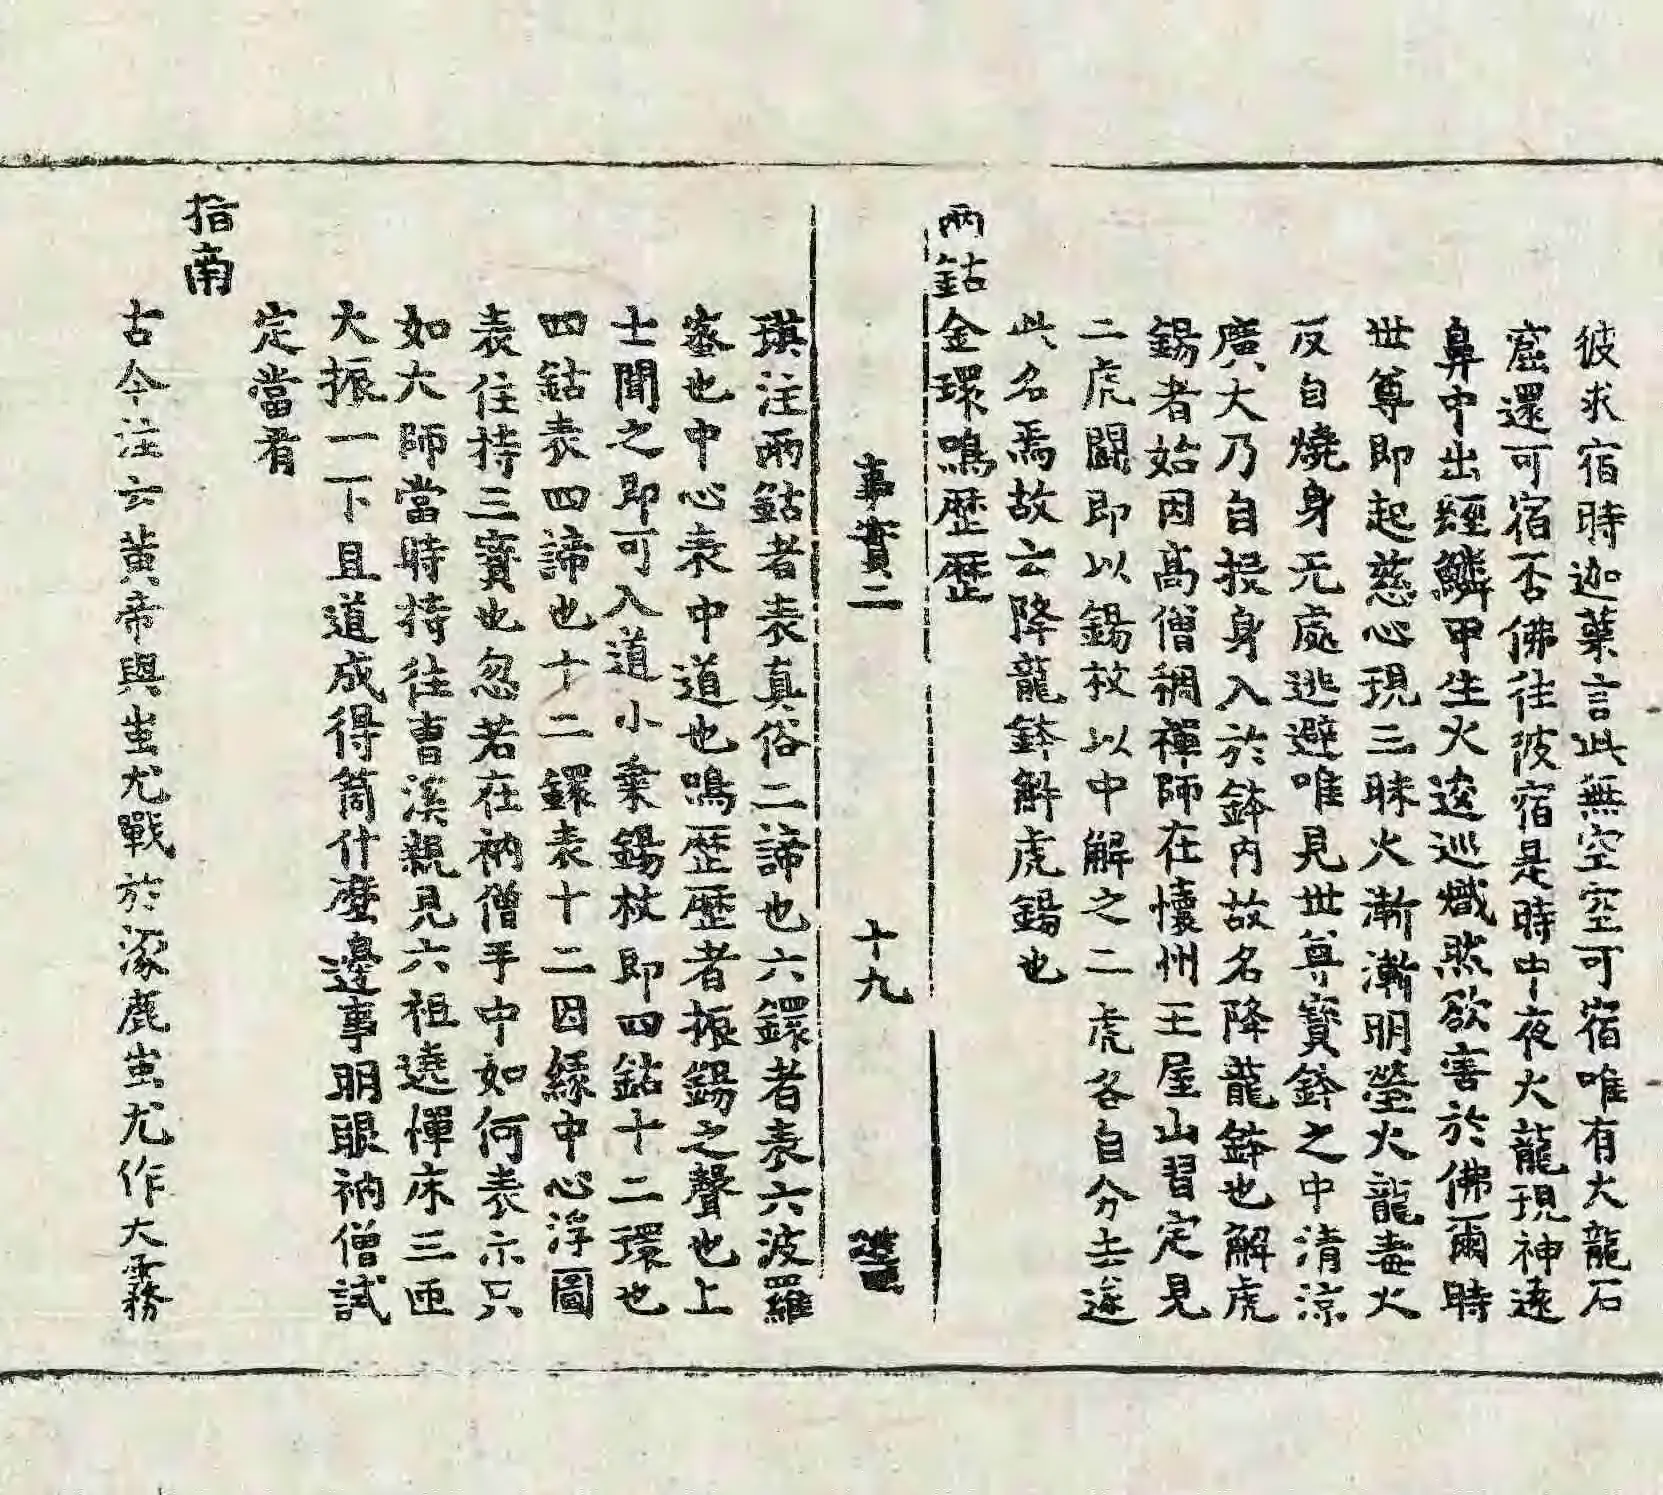 彼求宿時迦葉言此無空空可宿唯有大龍石
窟還可宿否佛往彼宿是時中夜火龍現神遶
鼻中出經鱗甲生火逡巡熾然欲害於佛爾時
世尊即起慈心現三昧火漸漸明瑩火龍毒火
反自燒身无處逃避唯見世尊寶鉢之中清涼
廣大乃自投身入於鉢内故名降龍鉢也解虎
錫者始因高僧稠禪師在懷州王屋山習定見
二虎鬪即以錫杖以中解之二虎各自分去遂
此名焉故云降龍鉢解虎錫也
兩鈷金環鳴歷歷
事實二　十九
琪注兩鈷者表真俗二諦也六鐶者表六波羅
蜜也中心表中道也鳴歷歷者振錫之聲也上
士聞之即可入道小乗錫杖即四鈷十二環也
四鈷表四諦也十二鐶表十二因緣中心浮圖
表住持三寳也忽若在衲僧手中如何表示只
如大師當時持往曹溪親見六祖遶惲床三匝
大振一下且道成得箇什麽邊事明眼衲僧試
定當看
指南
古今注云黄帝與蚩尤戰於涿鹿蚩尤作大霧